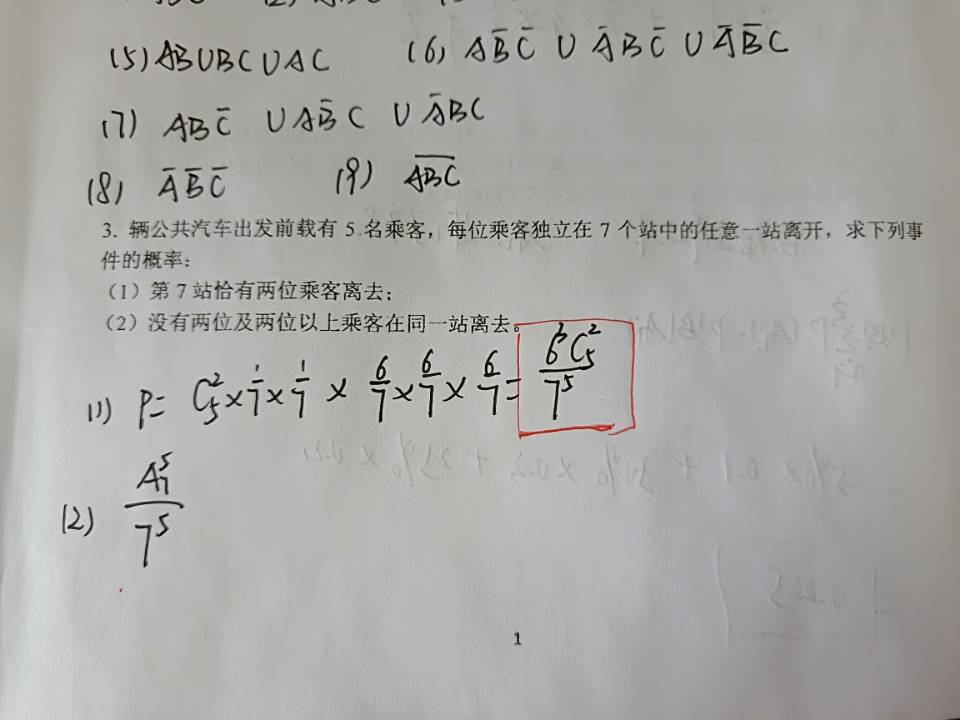 (5) AB∪BC∪AC (6) AB̄C̄ ∪ ĀBC̄ ∪ ĀB̄C
(7) ABC̄ ∪ AB̄C ∪ ĀBC
(8) ĀB̄C̄ (9) \overline{ABC}
3. 辆公共汽车出发前载有 5 名乘客，每位乘客独立在 7 个站中的任意一站离开，求下列事
件的概率：
（1）第 7 站恰有两位乘客离去；
（2）没有两位及两位以上乘客在同一站离去。
(1) P= C_5^2 × 1/7 × 1/7 × 6/7 × 6/7 × 6/7 = 6^3 C_5^2 / 7^5
(2) A_7^5 / 7^5
1